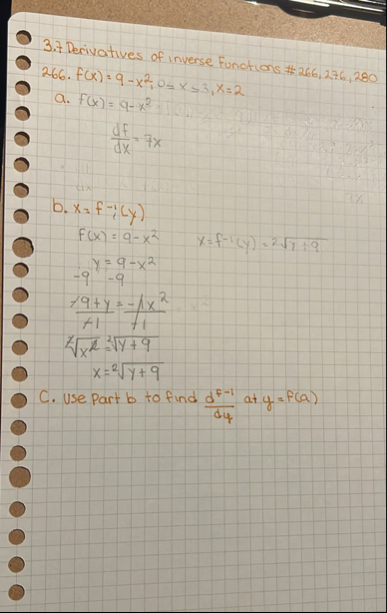 3.7 Derivatives of inverse Functions #266, 276, 280
266. f(x) = 9 - x², 0 ≤ x ≤ 3, x = 2
a. f(x) = 9 - x²
df/dx = 7x
b. x = f⁻¹(y)
f(x) = 9 - x² x = f⁻¹(y) = ²√y + 9
y = 9 - x²
-9 -9
-9 + y = -1x²
/-1 /-1
²√x² = ²√y + 9
x = ²√y + 9
C. Use Part b to find df⁻¹/dy at y = f(a)